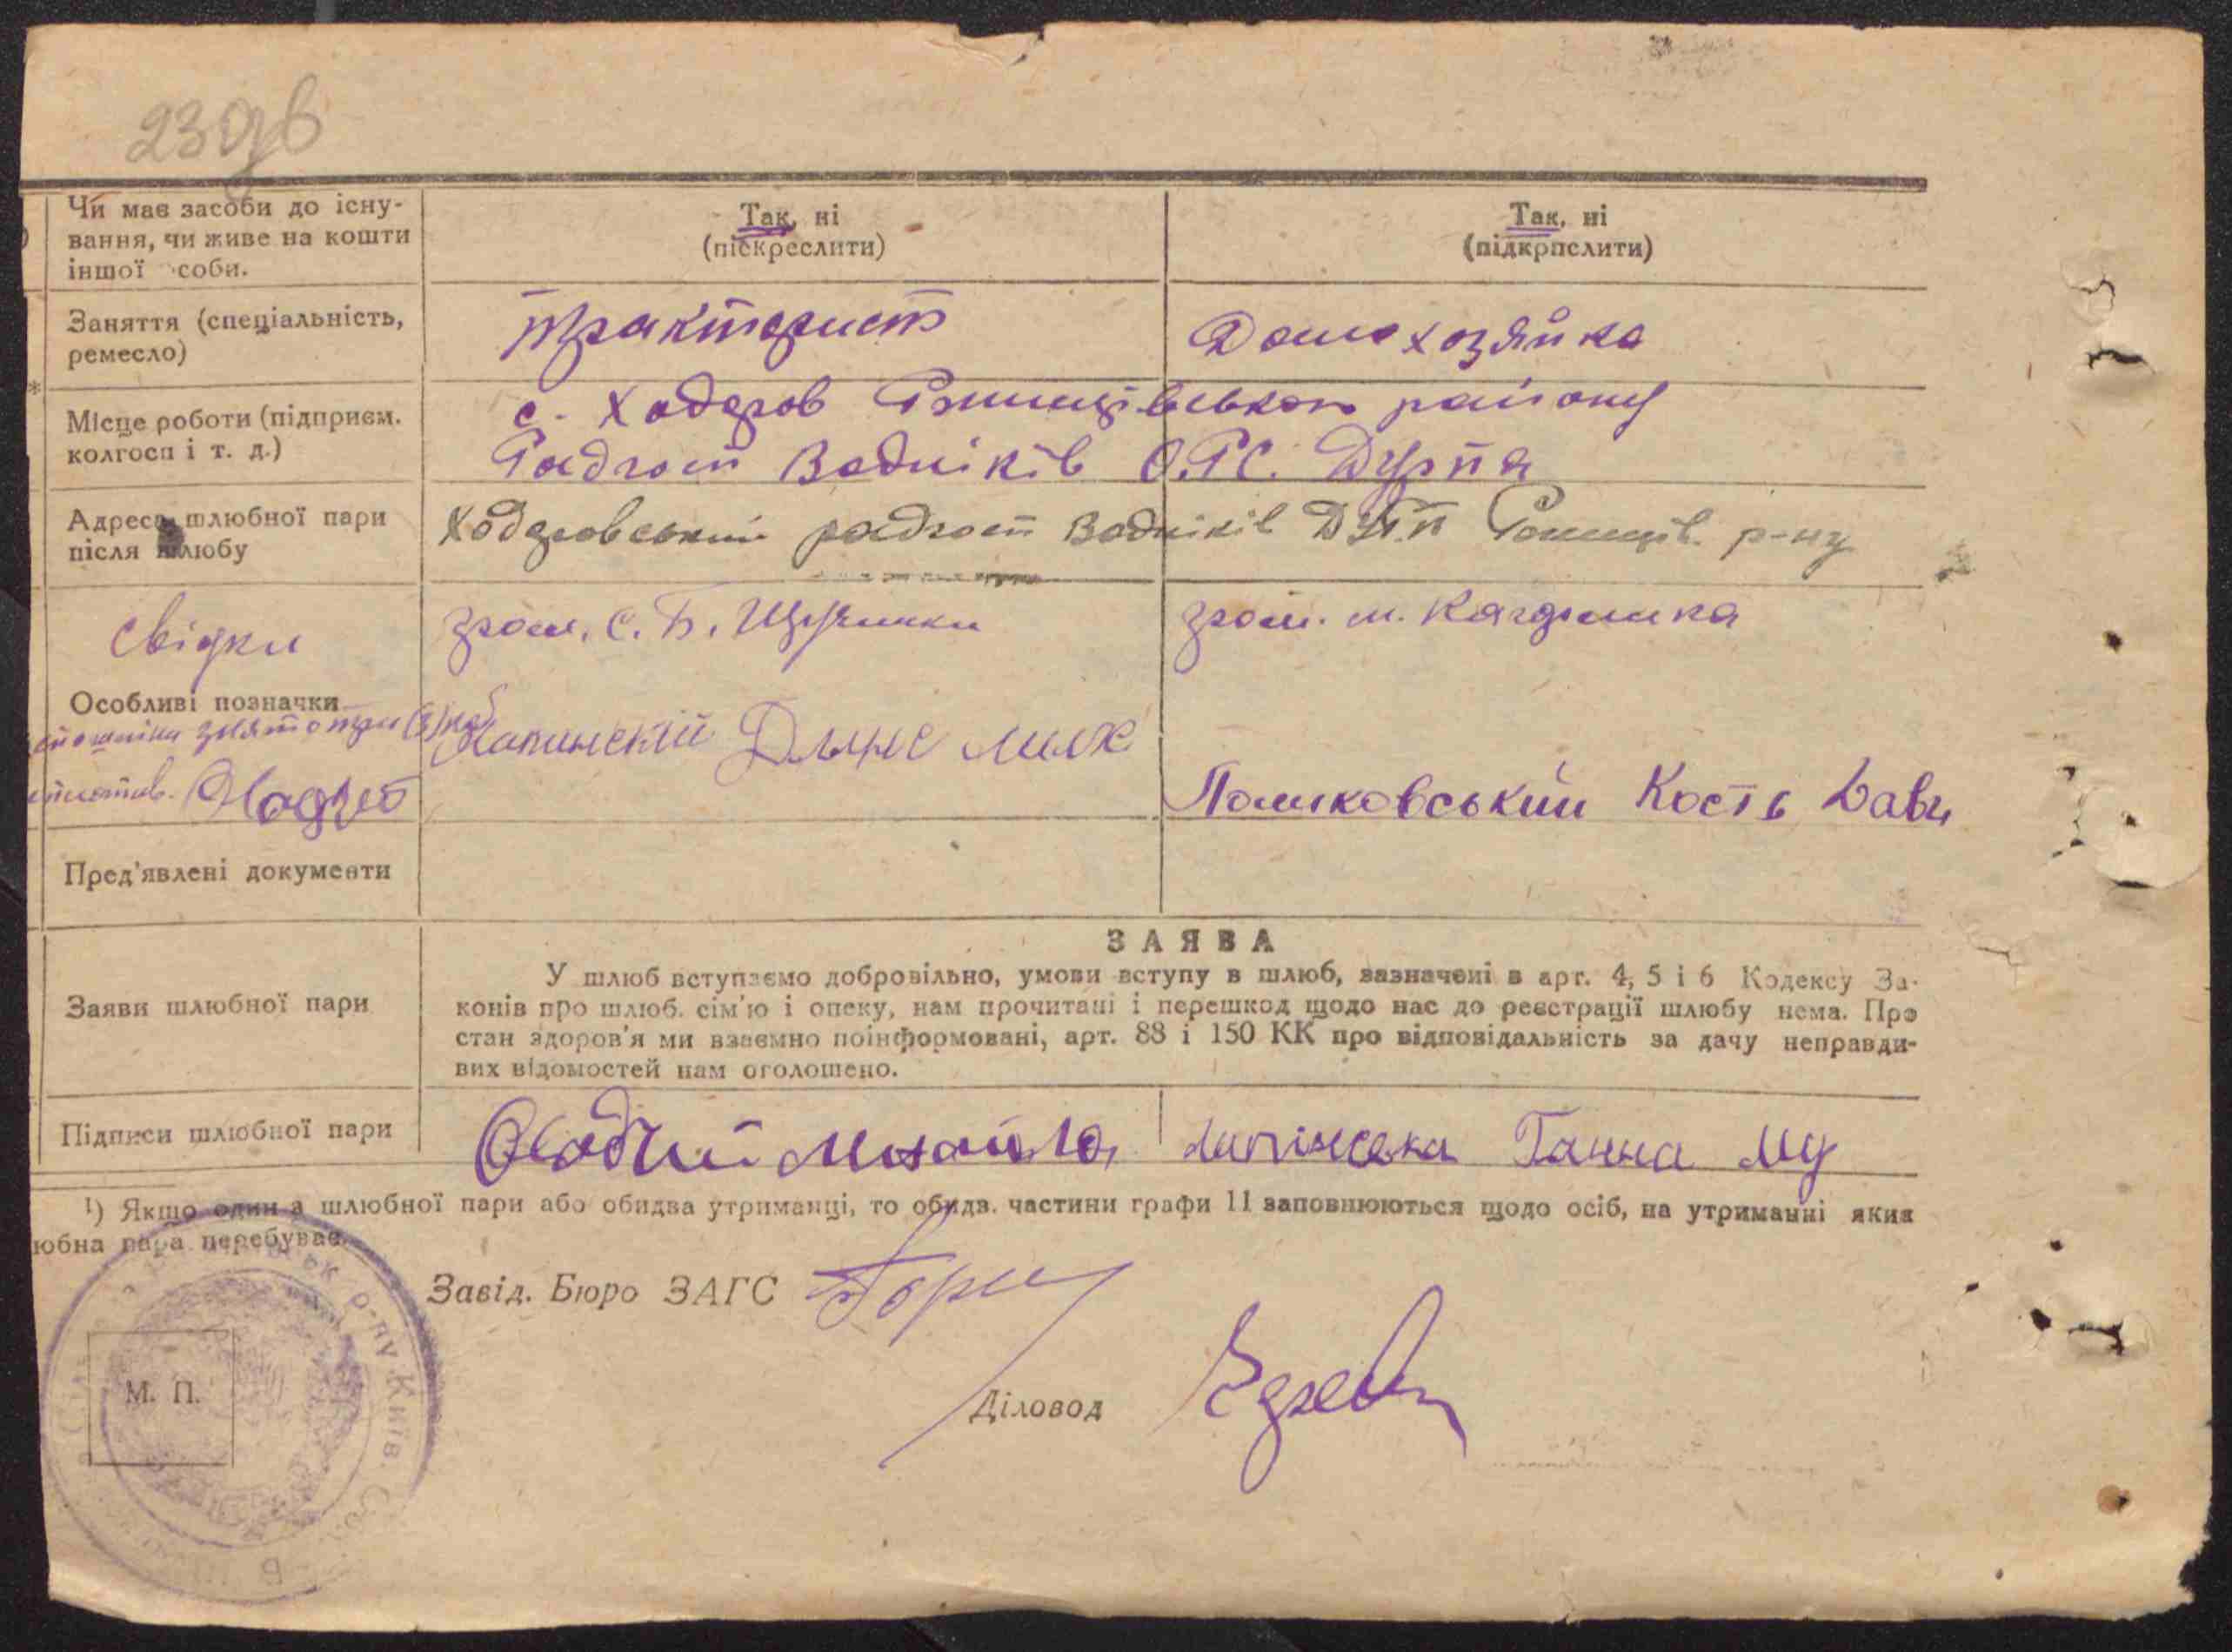 23
Чи має засоби до існу-
вання, чи живе на кошти
іншої соби.
Так, ні
(піскреслити)
Так, ні
(підкрпслити)
Заняття (спеціальність,
ремесло)
тракторист
Домохозяйка
Місце роботи (підприєм.
колгосп і т. д.)
с. Ходоров Ржищівського району
Радгосп Водніків О.Р.С. Дурпа
Адреса шлюбної пари
після шлюбу
Ходоровський радгосп Водніків Ржищів. р-ну
Свідки
гром. с. Б. Щучинки
гром. м. Кагарлика
Особливі позначки
Лапинський Дьонис Мих
Помиковський Кость Дави
Пред'явлені документи
ЗАЯВА
Заяви шлюбної пари
У шлюб вступаємо добровільно, умови вступу в шлюб, зазначені в арт. 4, 5 і 6 Кодексу За-
конів про шлюб. сім'ю і опеку, нам прочитані і перешкод щодо нас до реєстрації шлюбу нема. Про
стан здоров'я ми взаємно поінформовані, арт. 88 і 150 КК про відповідальність за дачу неправди-
вих відомостей нам оголошено.
Підписи шлюбної пари
Михайло
Лапінська Ганна
¹) Якщо один з шлюбної пари або обидва утриманці, то обидв. частини графи 11 заповнюються щодо осіб, на утриманні яких
юбна пара перебуває.
Завід. Бюро ЗАГС
М. П.
Діловод
р-ну Київ.